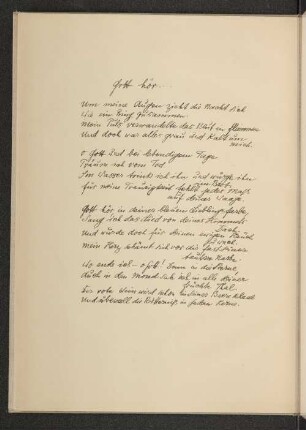 Gott hör...
Um meine Augen zieht die Nacht sich
Wie ein Ring zusammen.
Mein Puls verwandelte das Blut in Flammen
Und doch war alles grau und kalt um
mich.
O Gott und bei lebendigem Tage
Träum ich vom Tod.
Im Wasser trink ich ihn und würge ihn
im Brot.
Für meine Traurigkeit fehlt jedes Maß
auf deiner Waage.
Gott hör in deiner blauen Lieblingsfarbe
Sang ich das Lied von deines Himmels
Dach
Und wurde doch für deinen ewigen Hauch
zu wach.
Mein Herz schämt sich vor dir fast seiner
tauben Narbe.
Wo ende ich - o Gott! Denn in die Sterne,
Auch in den Mond sah ich in alle deiner
Früchte Tal.
Der rote Wein wird schon in seiner Beere schal
Und überall die Bitternis in jedem Kerne.